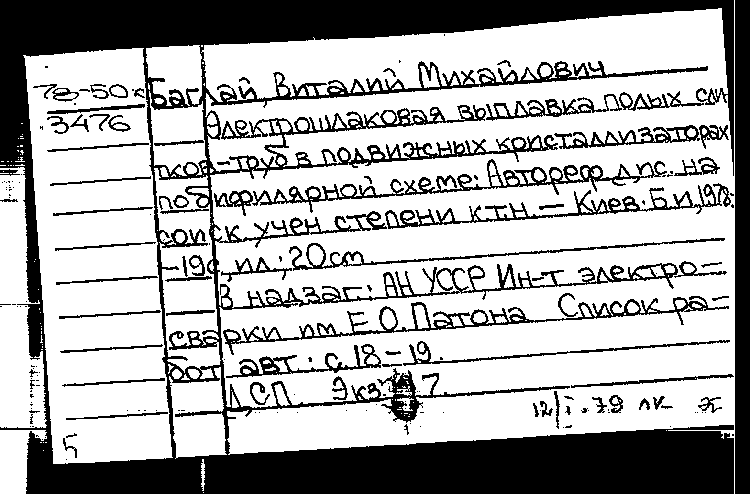 78-50к Баглай, Виталий Михайлович
3476 Электрошлаковая выплавка полых сли-
тков-труб в подвижных кристаллизаторах
по бифилярной схеме: Автореф. дис. на
соиск. учен степени к.т.н. — Киев: Б.и, 1978.
-19с, ил.; 20cm.
В надзаг.: АН УССР, Ин-т электро-
сварки им. Е.О. Патона Список ра-
бот авт.: с. 18-19.
ДСП. Экз. 7.
12/I.79 ЛК
5